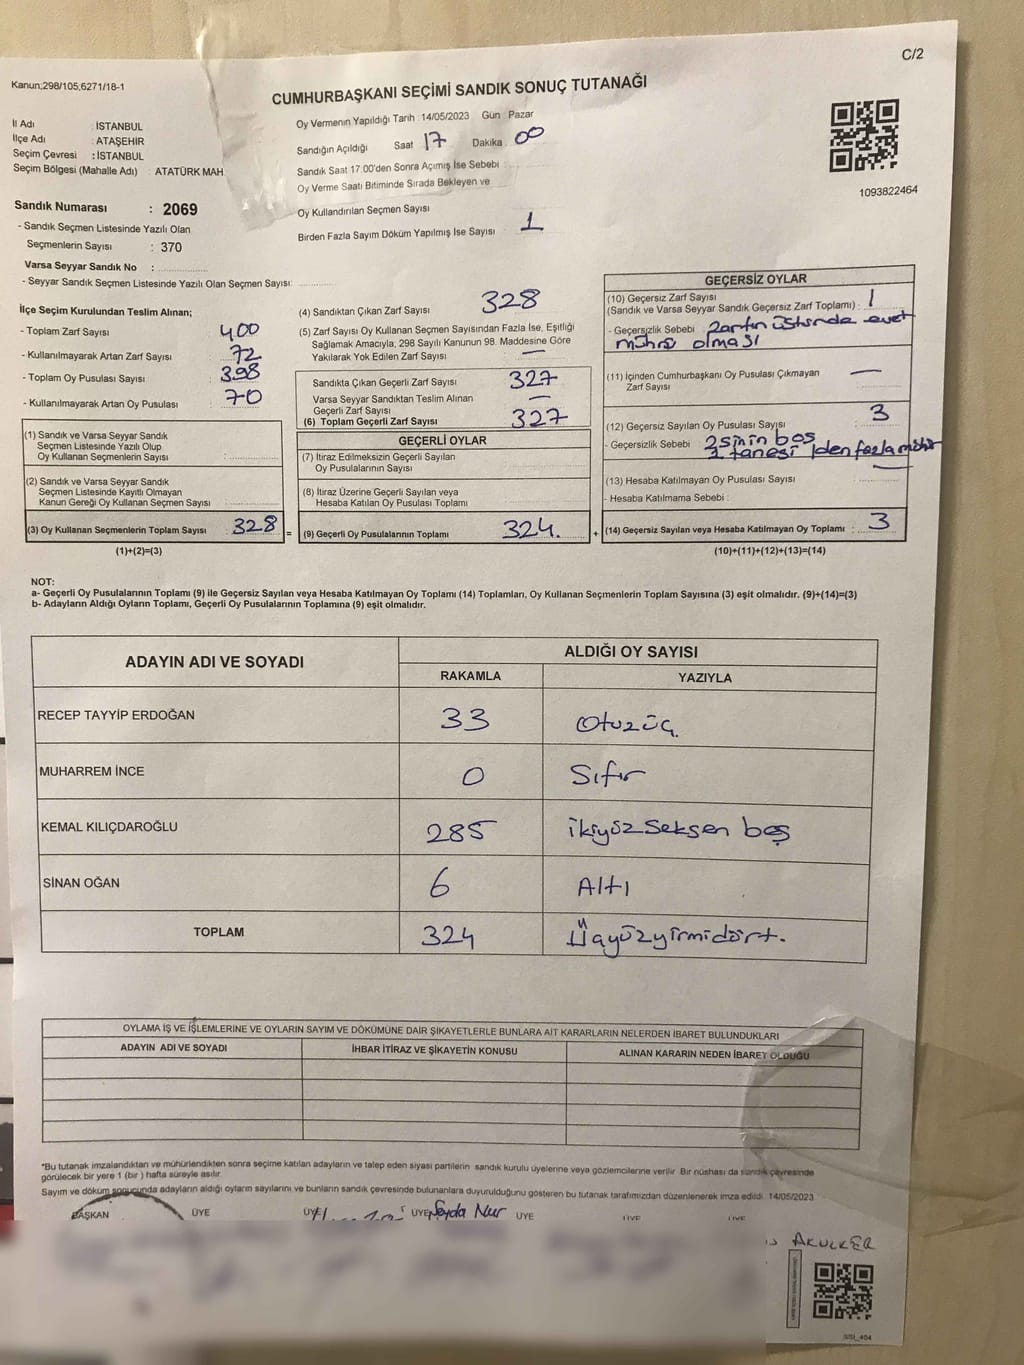 C/2
Kanun;298/105,6271/18-1
CUMHURBAŞKANI SEÇİMİ SANDIK SONUÇ TUTANAĞI
İl Adı : İSTANBUL
İlçe Adı : ATAŞEHİR
Seçim Çevresi : İSTANBUL
Seçim Bölgesi (Mahalle Adı) : ATATÜRK MAH
Oy Vermenin Yapıldığı Tarih : 14/05/2023 Gün : Pazar
Sandığın Açıldığı Saat : 17 Dakika : 00
Sandık Saat 17:00'den Sonra Açımış İse Sebebi :
Oy Verme Saati Bitiminde Sırada Bekleyen ve
Oy Kullandırılan Seçmen Sayısı
Birden Fazla Sayım Döküm Yapılmış İse Sayısı : 1
1093822464
Sandık Numarası : 2069
- Sandık Seçmen Listesinde Yazılı Olan
Seçmenlerin Sayısı : 370
Varsa Seyyar Sandık No :
- Seyyar Sandık Seçmen Listesinde Yazılı Olan Seçmen Sayısı:
İlçe Seçim Kurulundan Teslim Alınan;
- Toplam Zarf Sayısı : 400
- Kullanılmayarak Artan Zarf Sayısı : 72
- Toplam Oy Pusulası Sayısı : 398
- Kullanılmayarak Artan Oy Pusulası : 70
(1) Sandık ve Varsa Seyyar Sandık
Seçmen Listesinde Yazılı Olup
Oy Kullanan Seçmenlerin Sayısı :
(2) Sandık ve Varsa Seyyar Sandık
Seçmen Listesinde Kayıtlı Olmayan
Kanun Gereği Oy Kullanan Seçmen Sayısı :
(3) Oy Kullanan Seçmenlerin Toplam Sayısı : 328 =
(1)+(2)=(3)
(4) Sandıktan Çıkan Zarf Sayısı : 328
(5) Zarf Sayısı Oy Kullanan Seçmen Sayısından Fazla İse, Eşitliği
Sağlamak Amacıyla, 298 Sayılı Kanunun 98. Maddesine Göre
Yakılarak Yok Edilen Zarf Sayısı : —
Sandıkta Çıkan Geçerli Zarf Sayısı : 327
Varsa Seyyar Sandıktan Teslim Alınan
Geçerli Zarf Sayısı : —
(6) Toplam Geçerli Zarf Sayısı : 327
GEÇERLİ OYLAR
(7) İtiraz Edilmeksizin Geçerli Sayılan
Oy Pusulalarının Sayısı :
(8) İtiraz Üzerine Geçerli Sayılan veya
Hesaba Katılan Oy Pusulası Toplamı :
(9) Geçerli Oy Pusulalarının Toplamı : 324. +
GEÇERSİZ OYLAR
(10) Geçersiz Zarf Sayısı
(Sandık ve Varsa Seyyar Sandık Geçersiz Zarf Toplamı) : 1
- Geçersizlik Sebebi : zarfın üstünde evet
mührü olması
(11) İçinden Cumhurbaşkanı Oy Pusulası Çıkmayan
Zarf Sayısı : —
(12) Geçersiz Sayılan Oy Pusulası Sayısı : 3
- Geçersizlik Sebebi : 2sinin boş
1 tanesi 1den fazla mühür
(13) Hesaba Katılmayan Oy Pusulası Sayısı : —
- Hesaba Katılmama Sebebi :
(14) Geçersiz Sayılan veya Hesaba Katılmayan Oy Toplamı : 3
(10)+(11)+(12)+(13)=(14)
NOT:
a- Geçerli Oy Pusulalarının Toplamı (9) ile Geçersiz Sayılan veya Hesaba Katılmayan Oy Toplamı (14) Toplamları, Oy Kullanan Seçmenlerin Toplam Sayısına (3) eşit olmalıdır. (9)+(14)=(3)
b- Adayların Aldığı Oyların Toplamı, Geçerli Oy Pusulalarının Toplamına (9) eşit olmalıdır.
ADAYIN ADI VE SOYADI ALDIĞI OY SAYISI
RAKAMLA YAZIYLA
RECEP TAYYİP ERDOĞAN 33 Otuzüç.
MUHARREM İNCE 0 Sıfır
KEMAL KILIÇDAROĞLU 285 ikiyüz Seksen beş
SİNAN OĞAN 6 Altı
TOPLAM 324 Üçyüzyirmidört.
OYLAMA İŞ VE İŞLEMLERİNE VE OYLARIN SAYIM VE DÖKÜMÜNE DAİR ŞİKAYETLERLE BUNLARA AİT KARARLARIN NELERDEN İBARET BULUNDUKLARI
ADAYIN ADI VE SOYADI İHBAR İTİRAZ VE ŞİKAYETİN KONUSU ALINAN KARARIN NEDEN İBARET OLDUĞU
*Bu tutanak imzalandıktan ve mühürlendikten sonra seçime katılan adayların ve talep eden siyasi partilerin sandık kurulu üyelerine veya gözlemcilerine verilir. Bir nüshası da sandık çevresinde
görülecek bir yere 1 (bir) hafta süreyle asılır.
Sayım ve döküm sonucunda adayların aldığı oyların sayılarını ve bunların sandık çevresinde bulunanlara duyurulduğunu gösteren bu tutanak tarafımızdan düzenlenerek imza edildi. 14/05/2023
BAŞKAN ÜYE ÜYE ÜYE Şeyda Nur ÜYE ÜYE ÜYE
AKÜLKER